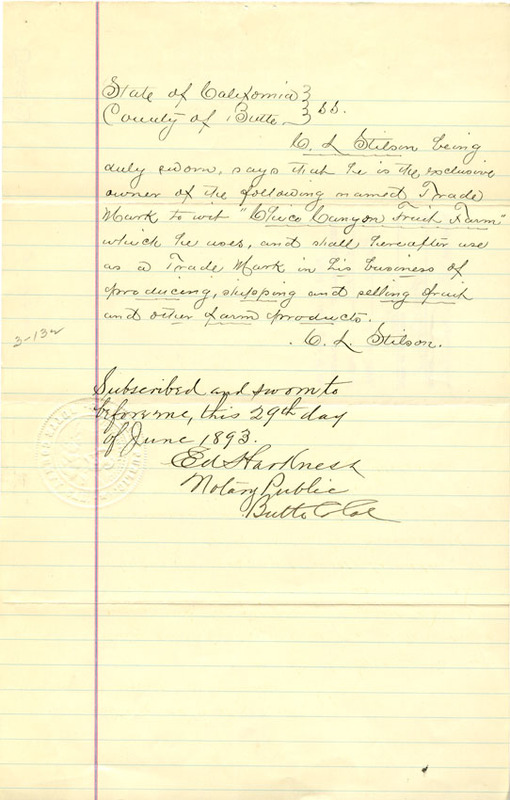 State of California }
County of Butte } SS.
C. L. Stilson being
duly sworn, says that he is the exclusive
owner of the following named Trade
Mark to wit "Chico Canyon Fruit Farm"
which he uses, and shall hereafter use
as a Trade Mark in his business of
producing, shipping and selling fruit
and other farm products.
C. L. Stilson.
3-132
Subscribed and sworn to
before me, this 29th day
of June 1893.
Ed Harkness
Notary Public
Butte Co Cal